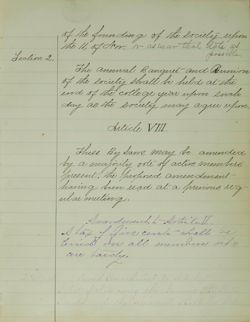 of the founding of the society upon
the 11 of Nov. or as near that date as
possible.
Section 2.
The Annual Banquet and Reunion
of the society shall be held at the
end of the college year upon such
day as the society may agree upon.
Article VIII.
These By Laws may be amended
by a majority vote of active members
present, the proposed amendment
having been read at a previous reg-
ular meeting.
Amendment to Article V.
A tax of five cents shall be
levied on all members who
are tardy.